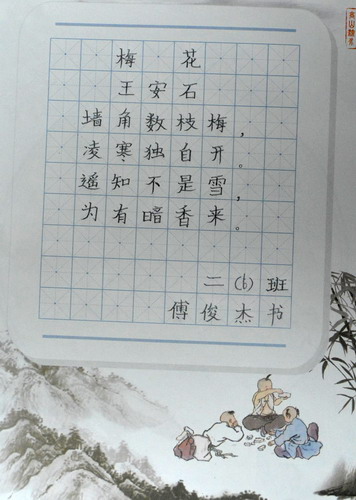 梅花
王安石
墙角数枝梅，
凌寒独自开。
遥知不是雪，
为有暗香来。
二（6）班
傅俊杰书